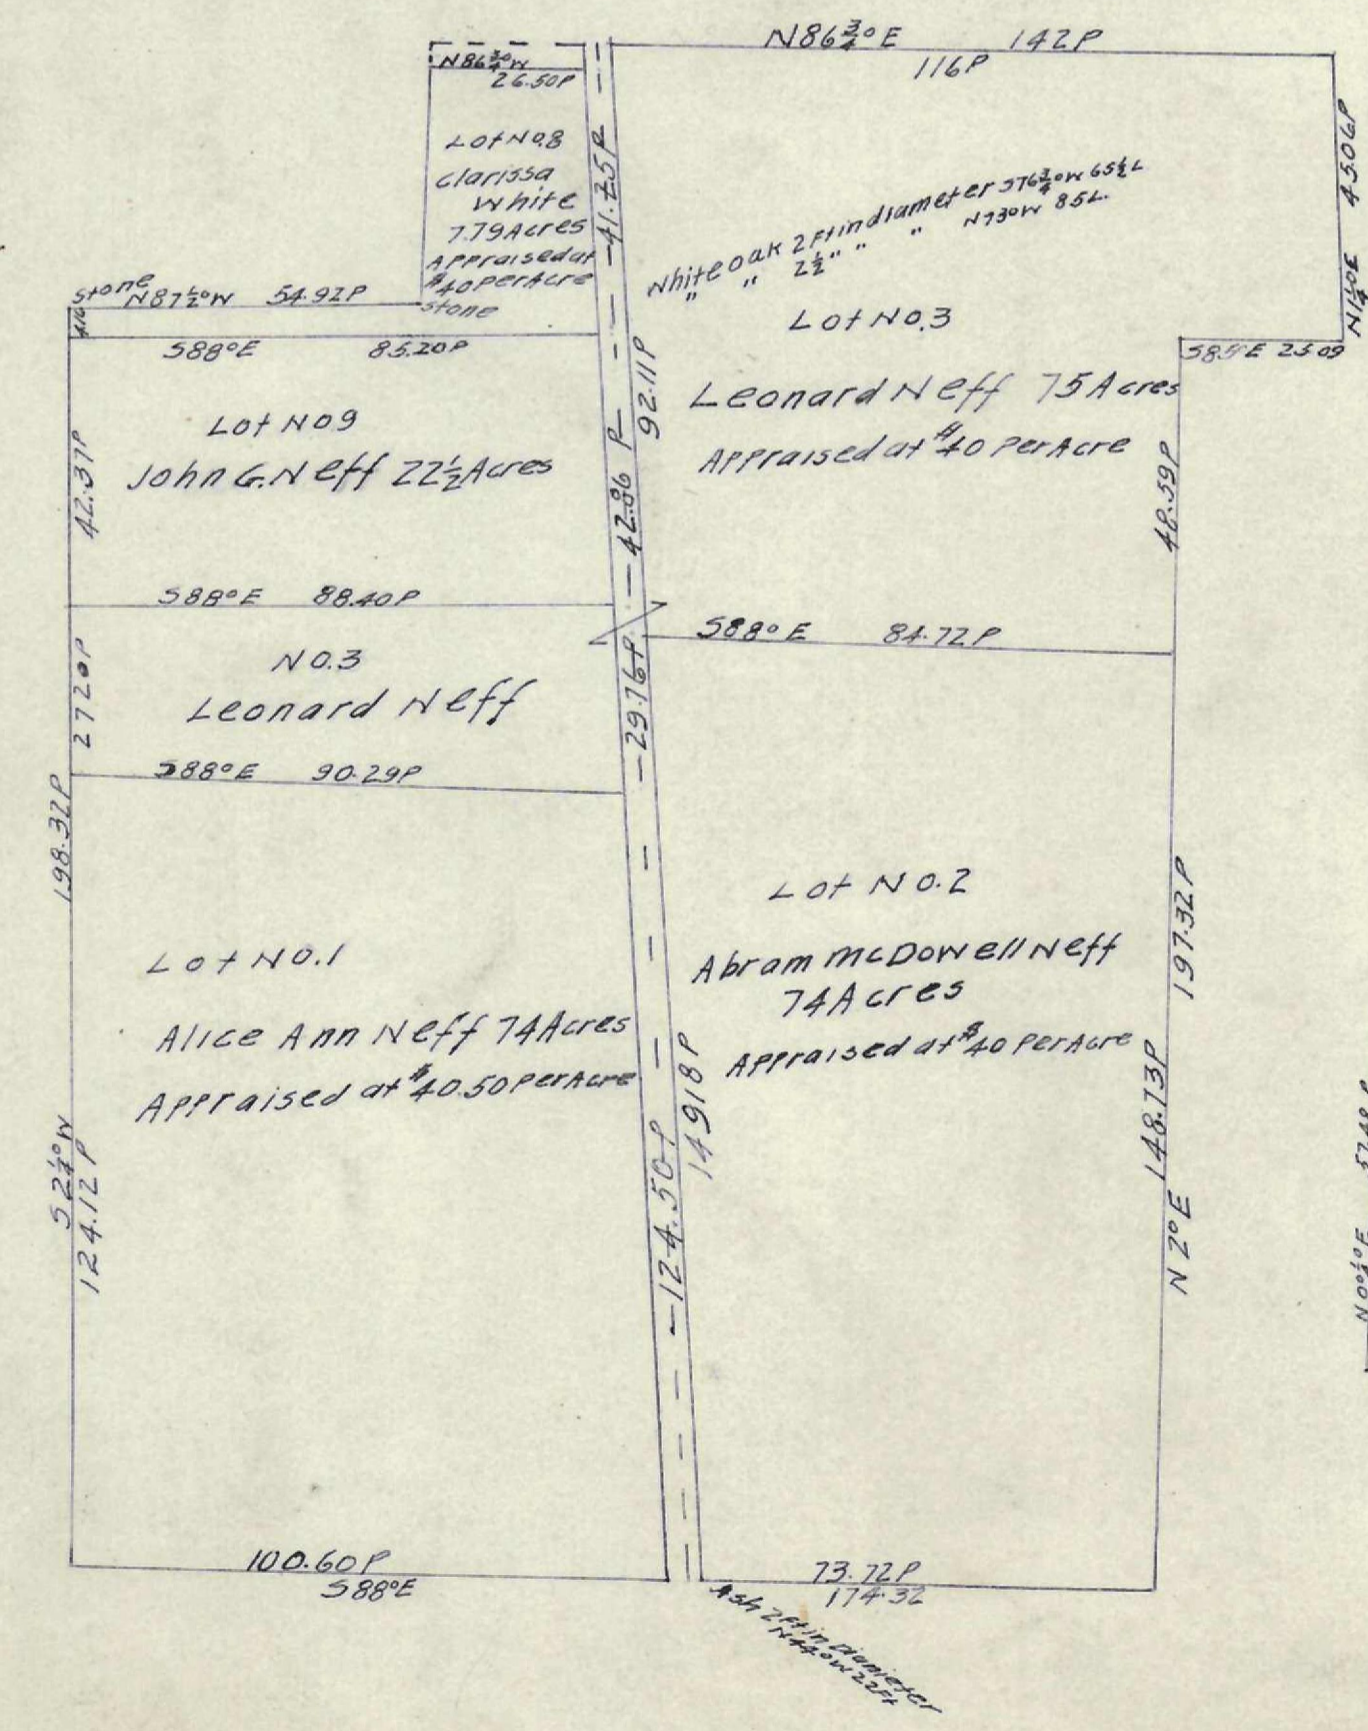 N86¾°E 142P
116P
N86¾°W
26.50P
Lot No8
Clarissa
White
7.79 Acres
Appraised at
$40 Per Acre
Stone
41.25P
N1¼°E 45.06P
White Oak 2 Ft in diameter S76¾°W 65½L
" " 2½ " " " N73°W 85L.
Stone
N87½°W 54.92P
416
S88°E 85.20P
Lot No.3
Leonard Neff 75 Acres
Appraised at $40 Per Acre
92.11P
25.09
Lot No9
John G. Neff 22½ Acres
42.37P
42.06 P
48.59P
S88°E 88.40P
S88°E 84.72P
No.3
Leonard Neff
2720P
29.76P
S88°E 90.29P
198.32P
Lot No.2
Abram McDowell Neff
74 Acres
Appraised at $40 Per Acre
197.32P
Lot No.1
Alice Ann Neff 74 Acres
Appraised at $40.50 Per Acre
S2¼°W
124.12P
124.50P
14918P
N2°E 148.73P
57.48P
100.60P
S88°E
73.72P
174.32
Ash 2Ft in Diameter
N44°W 22Ft